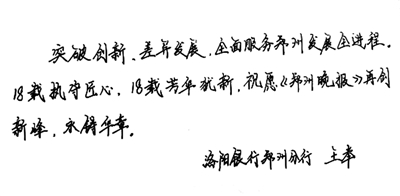 突破创新、差异发展、全面服务郑州发展全进程。
18载执守匠心，18载芳华犹新，祝愿《郑州晚报》再创
新峰，永铸华章。
洛阳银行郑州分行 王奉